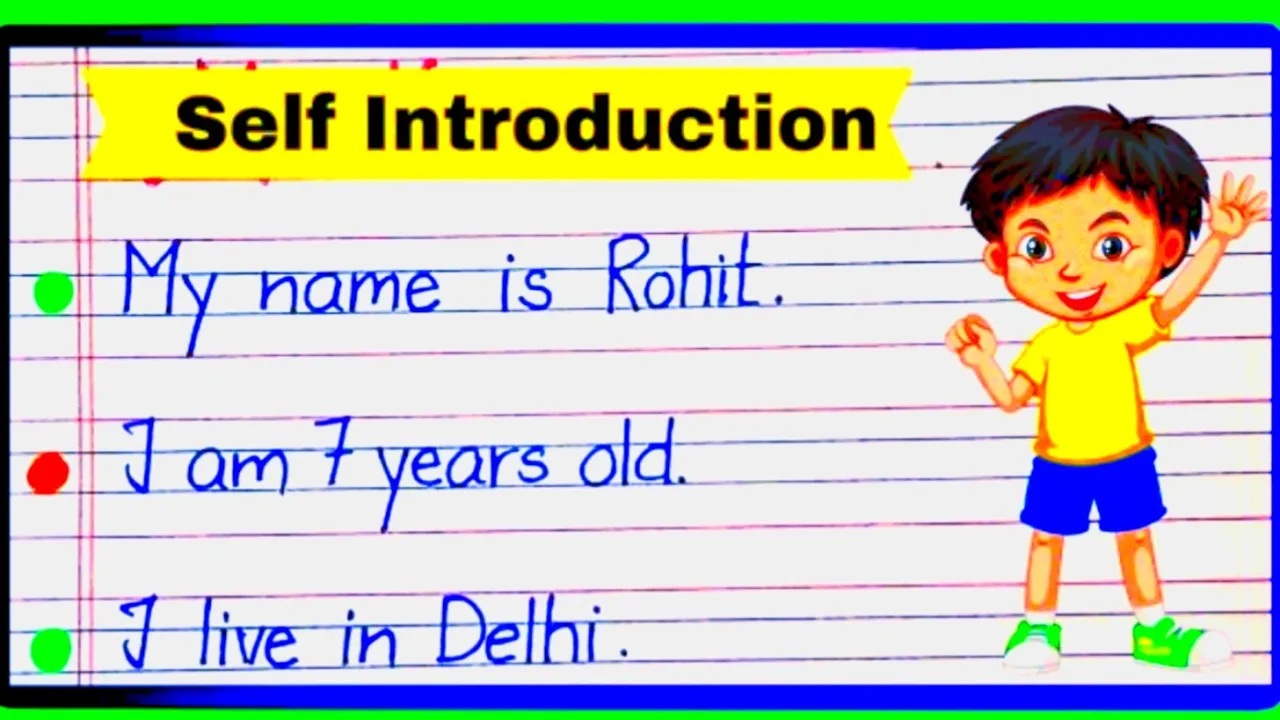 Self Introduction
My name is Rohit.
I am 7 years old.
I live in Delhi.